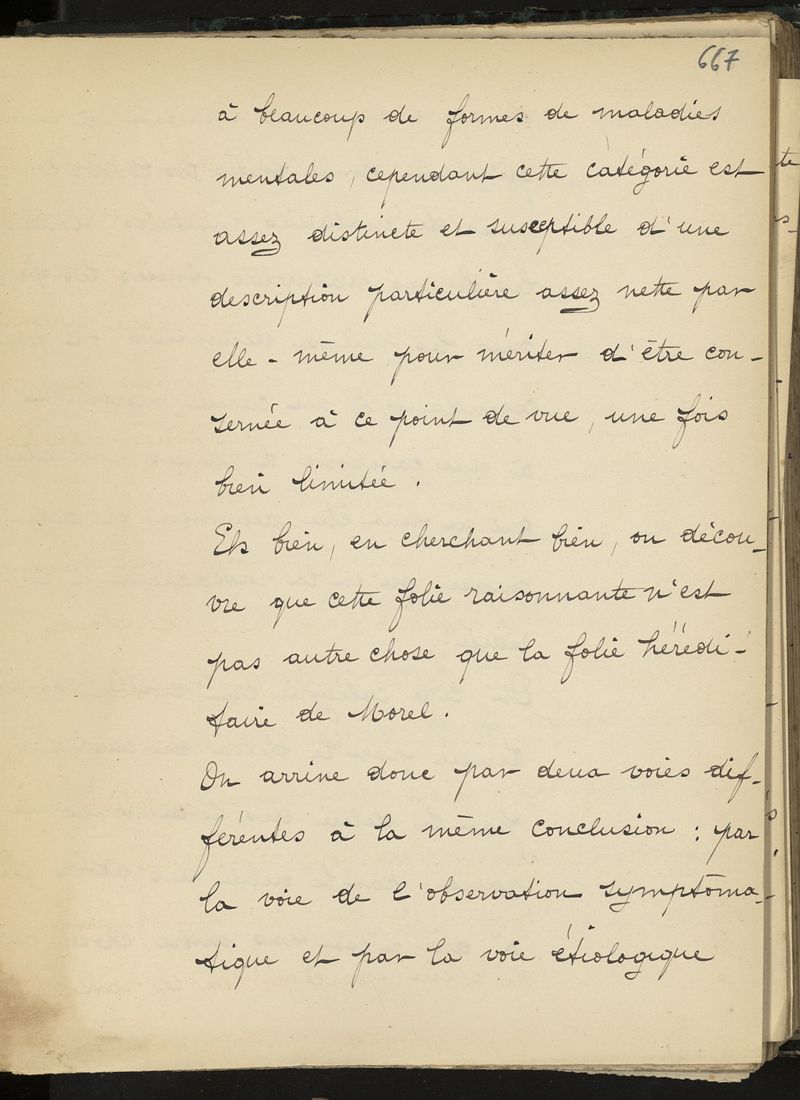 667
à beaucoup de formes de maladies
mentales, cependant cette catégorie est
assez distincte et susceptible d'une
description particulière assez nette par
elle-même pour mériter d'être con-
servée à ce point de vue, une fois
bien limitée.
Eh bien, en cherchant bien, on décou-
vre que cette folie raisonnante n'est
pas autre chose que la folie hérédi-
taire de Morel.
On arrive donc par deux voies dif-
férentes à la même conclusion : par
la voie de l'observation symptôma-
tique et par la voie étiologique